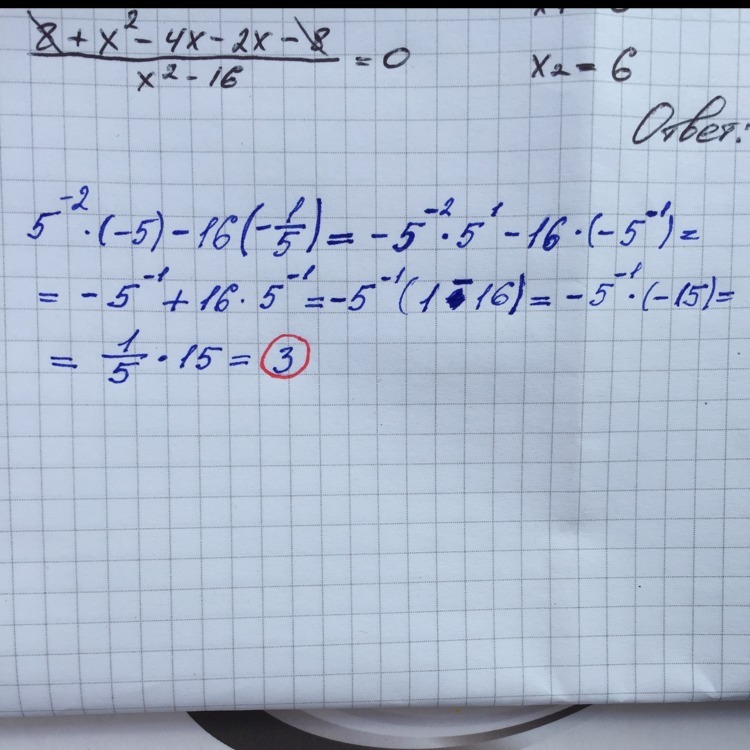 8 + x² - 4x - 2x - 8 / x² - 16 = 0
x₂ = 6
Ответ:
5⁻² · (-5) - 16(-1/5) = -5⁻² · 5¹ - 16 · (-5⁻¹) =
= -5⁻¹ + 16 · 5⁻¹ = -5⁻¹(1 - 16) = -5⁻¹ · (-15) =
= 1/5 · 15 = 3